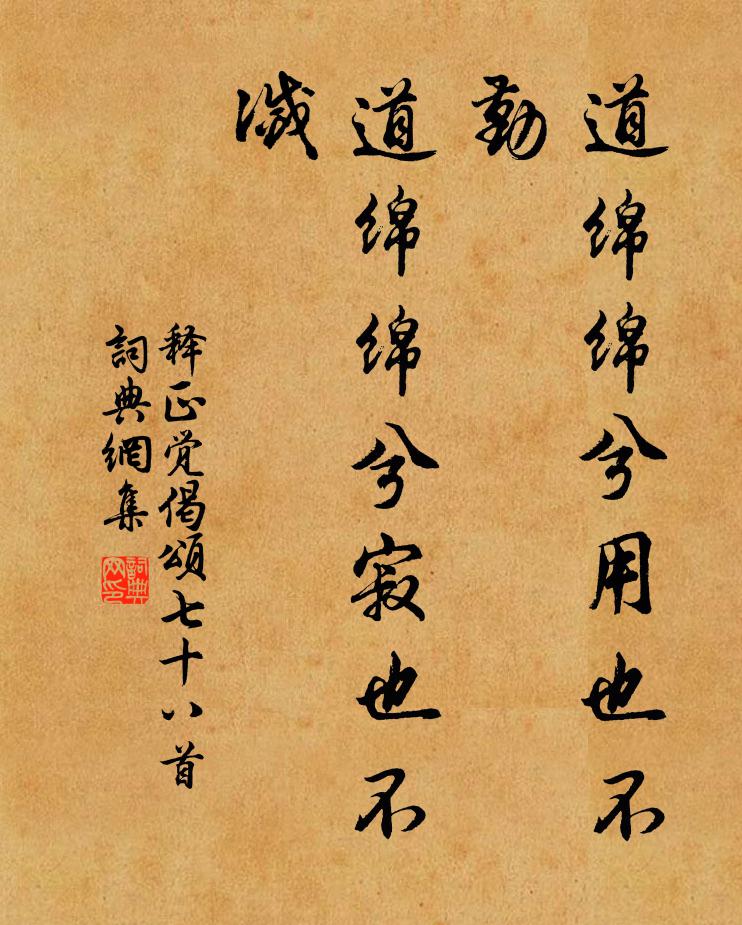 道绵绵兮用也不
勤
道绵绵兮寂也不
滅
释正觉偈頌七十八首
詞典網集
詞典
网印